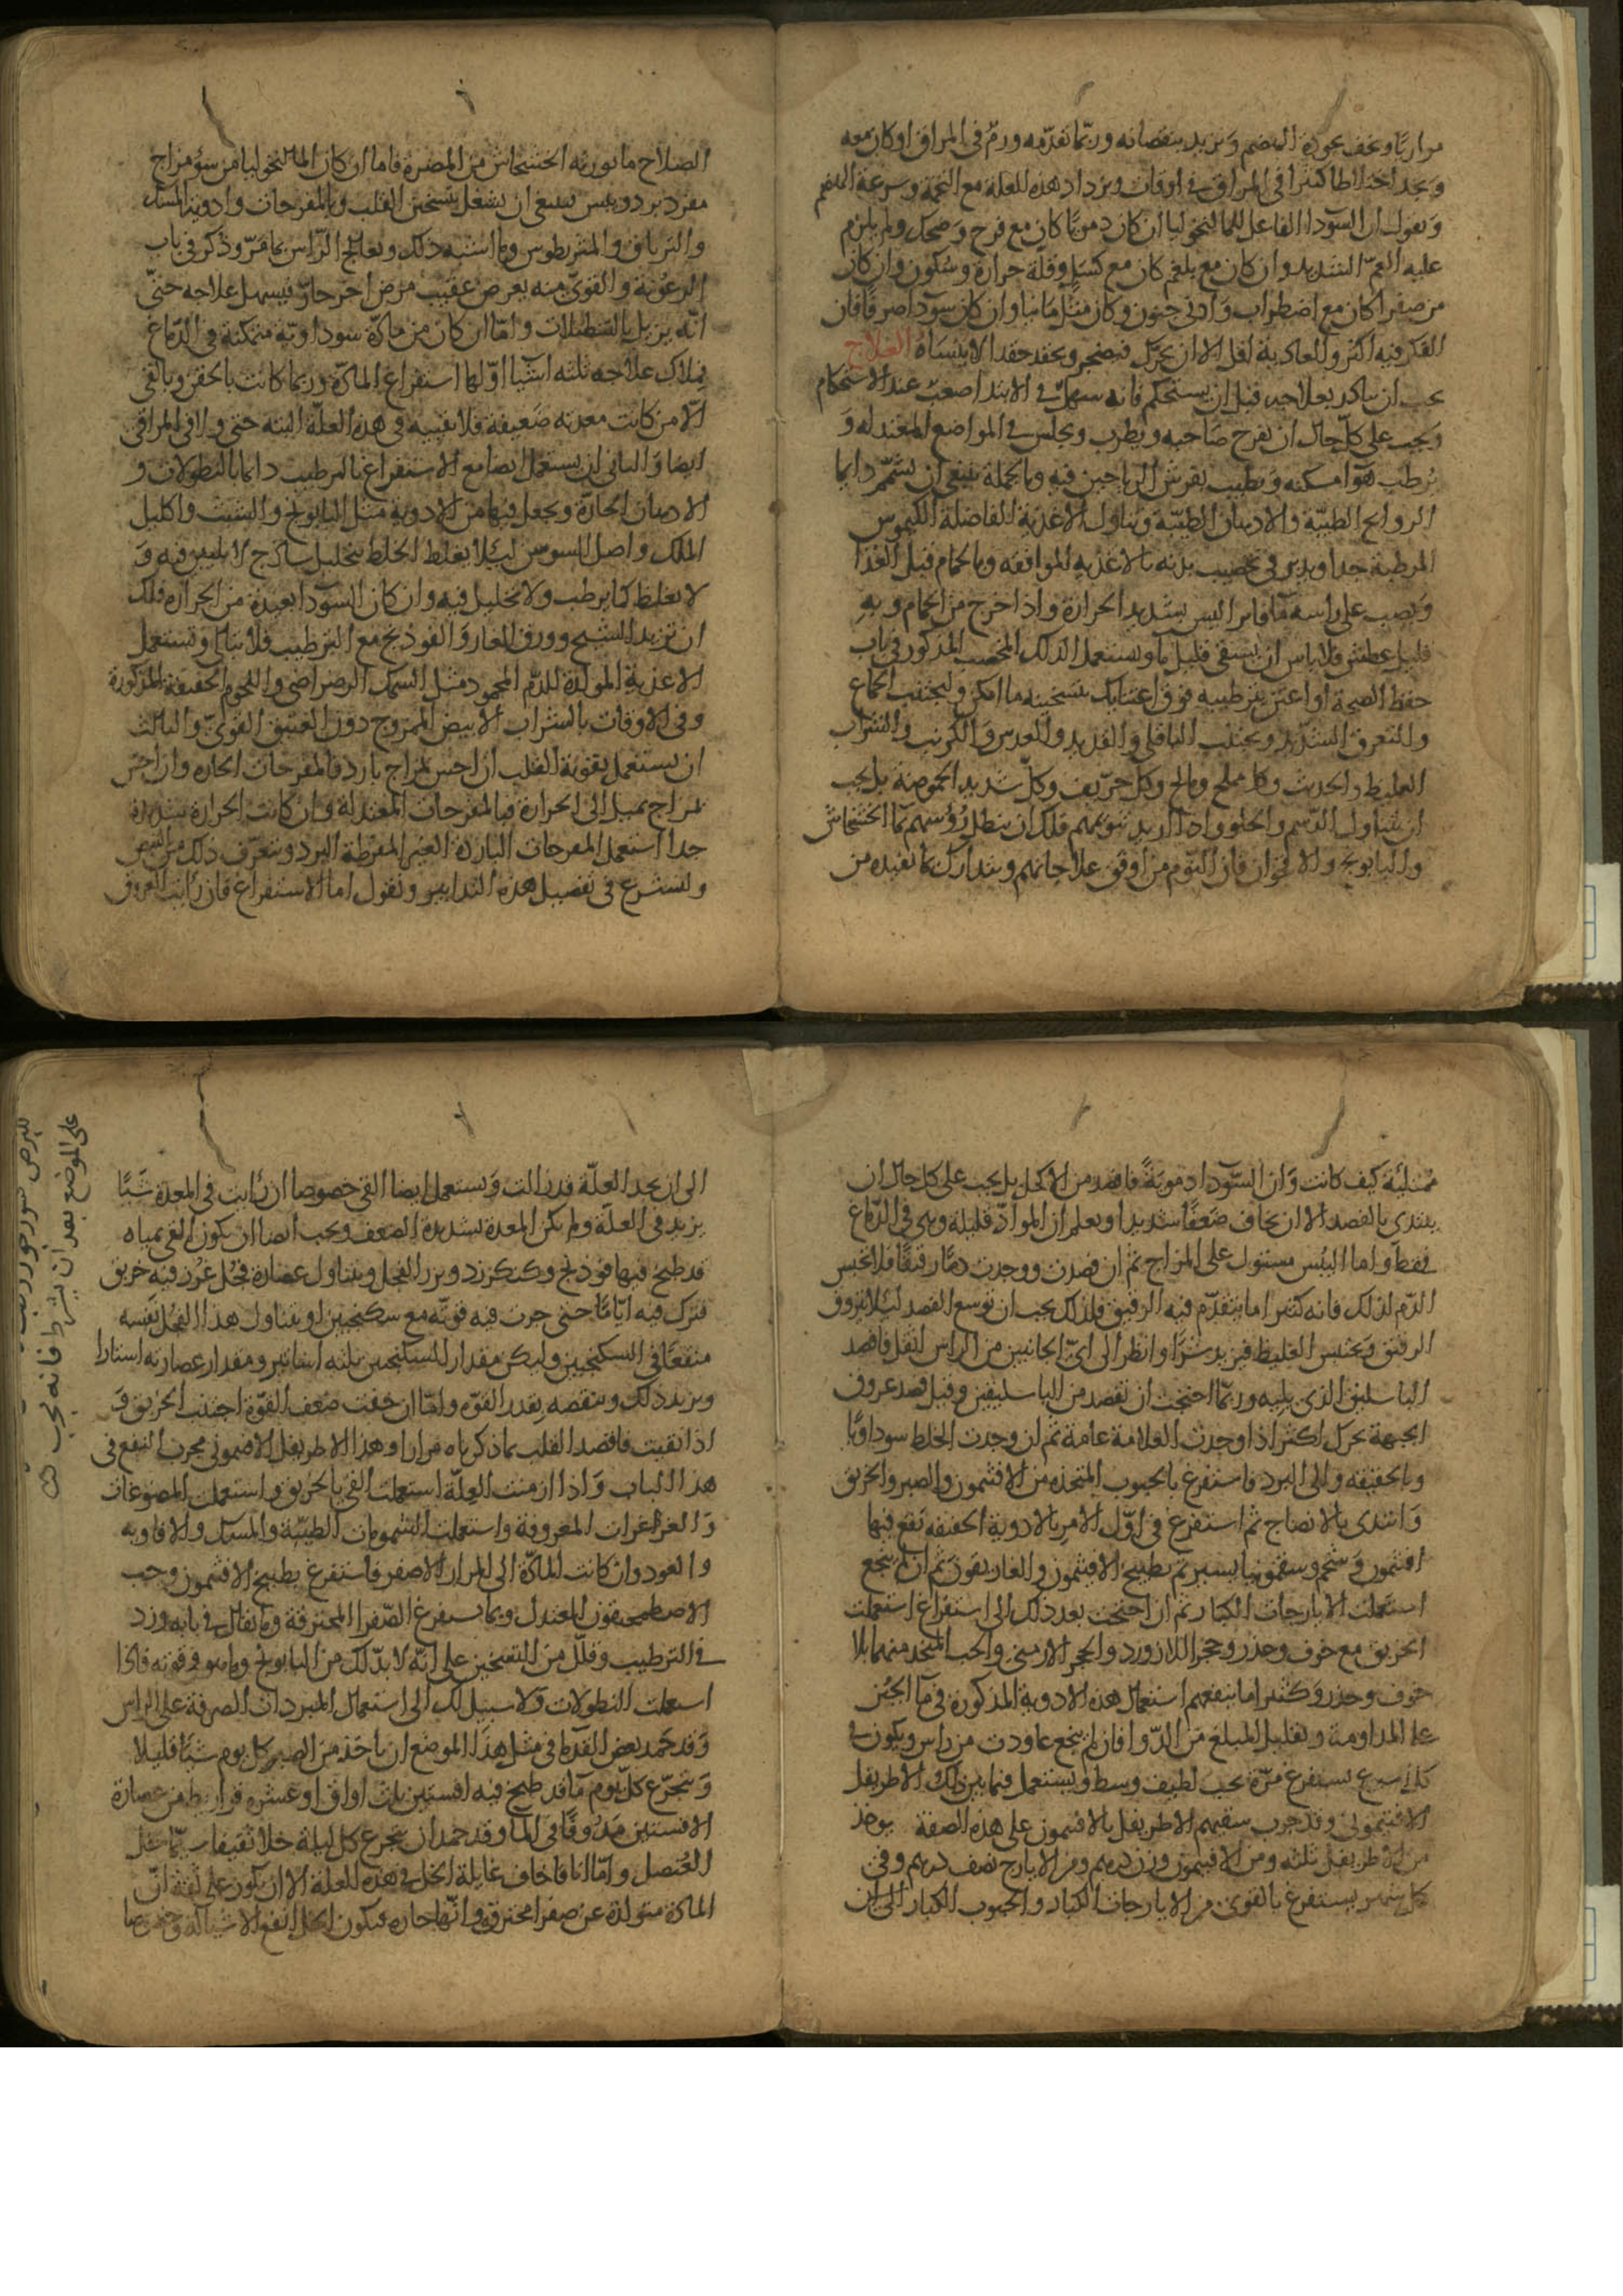 مراريًا ويخف بجودة الهضم ويزيد بنقصانه وربّما تقدّمه ورم في المراق او كان معه
ويجد اختلاطا كثيرا في المراق في اوقات ويزداد هذه العلة مع التخمة وسرعة الهضم
ونقول ان السّوداء الفاعل للمالنخوليا ان كان دمويًا كان مع فرح وضحك ولم يلزم
عليه الغمّ الشديد وان كان مع بلغم كان مع كسل وقلة حرارة وسكون وان كان
من صفرا كان مع اضطراب وادنى جنون وكان مثل مانيا وان كان سودا صرفا فان
الفكر فيه اكثر والعادية اقل الا ان يحرّك فيضجر ويحقد حقدا لا ينساه العلاج
يجب ان يباكر بعلاجه قبل ان يستحكم فانه سهل في الابتدا صعب عند الاستحكام
ويجب على كلّ حال ان يفرح صاحبه ويطرب ويجلس في المواضع المعتدلة و
يرطب هوا مسكنه ويطيب بفرش الرياحين فيه وبالجملة ينبغي ان يشمّم دايما
الروايح الطيبّة والادهان الطيبّة ويناول الاغذية الفاضلة الكيموس
المرطبة جدا ويدبر في تخصيب بدنه بالاغذية الموافقة وبالحمام قبل الغذا
ويصب على راسه ما فاتر ليس بشديد الحرارة واذا خرج من الحمام وبه
قليل عطش فلا باس ان يسقى قليل ما ويستعمل الدلك المخصب المذكور في باب
حفظ الصحة واعتن بترطيبه فوق اعتنايك بتسخينه ما امكن وليجتنب الجماع
والتعرق الشديد ويجتنب الباقلي والقديد والعدس والكرنب والشراب
الغليظ والحديث وكل مملح ومالح وكل حرّيف وكلّ شديد الحموضة بل يجب
ان يتناول الدّسم والحلو واذا اريد تنويمهم فلك ان ينطل رؤسهم بما الخشخاش
والبابونج والاقحوان فان النّوم من اوفق علاجاتهم ويتدارك بما يفيده من
الصلاح ما يورثه الخشخاش من المضرة فاما ان كان المالنخوليا من سؤ مزاج
مفرد برد ويبس فينبغي ان يشغل بتسخين القلب وبالمفرحات وادوية المسك
والترياق والمثروديطوس وما اشبه ذلك ويعالج الرّاس بما مرّ وذكر في باب
الرعونة والقوىّ منه يعرض عقيب مرض اخر حارّ فيسهل علاجه حتّى
انّه يزيل بالتنطيلات وامّا ان كان من مادّة سوداويّة متمكنة في الدّماغ
فملاك علاجه ثلثة اشيا اوّلها استفراغ المادّة وربما كانت بالحقن وبالقي
الّا من كانت معدته ضعيفة فلا نقييه في هذه العلّة البتة حتى ولا في المراقي
ايضا والثاني ان يستعمل ايضا مع الاستفراغ الترطيب دايما بالنطولات و
الادهان الحارّة ويجعل فيها من الادوية مثل البابونج والشبت واكليل
الملك واصل السوس ليلا يغلظ الخلط بتحليل ساذج لا تليين فيه و
لا يغلظ كما يرطب ولا تحليل فيه وان كان السّودا بعيدة من الحرارة فلك
ان تزيد الشيح وورق الغار والفوذنج مع الترطيب فلا تبالي وتستعمل
الاغذية المولدة للدّم المحمود مثل السمك الرضراضي واللحوم الخفيفة المذكورة
وفي الاوقات بالشراب الابيض الممزوج دون العتيق القويّ والثالث
ان يستعمل تقوية القلب ان احسّ بمزاج بارد فالمفرحات الحارة وان احسّ
بمزاج يميل الى الحرارة فبالمفرحات المعتدلة وان كانت الحرارة شديدة
جدا استعمل المفرحات الباردة الغير المفرطة البرد ويتعرّف ذلك من النبض
ولنشرع في تفصيل هذه التدابير ونقول اما الاستفراغ فان رايت العروق
ممتلئة كيف كانت وان السّودا دمويّة فافصد من الاكحل بل يجب على كل حال ان
يبتدى بالفصد الا ان يخاف ضعفا شديدا او يعلم ان الموادّ قليلة وهي في الدّماغ
فقط واما اليبس مستول على المزاج ثم ان فصدت ووجدت دمًا رقيقا فلا تحبس
الدّم لذلك فانه كثيرا ما يتقدّم فيه الرقيق فلذلك يجب ان توسع الفصد ليلا يتروق
الرقيق ويحتبس الغليظ فيزيد شرّا وانظر الى ايّ الجانبين من الراس اثقل فافصد
الباسليق الذي يليه وربّما احتجت ان تفصد من الباسليقين وقبل فصد عروق
الجبهة يحرك اكثر اذا وجدت العلامة عامة ثم ان وجدت الخلط سوداويًا
وبالحقيقة والى البرد فاستفرغ بالحبوب المتخذة من الافثيمون والصبر والخربق
وابتدى بالانضاج ثم استفرغ في اوّل الامر بالادوية الخفيفة يقع فيها
افثيمون وشحم وسقمونيا يسير ثم بطبيخ الافيثمون والغاريقون ثم ان لم ينجع
استعملت الايارجات الكبار ثم ان احتجت بعد ذلك الى استفراغ استعملت
الخربق مع خوف وحذر وحجر اللازورد والحجر الارمني والحب المتخذ منهما بلا
خوف وحذر وكثيرا ما ينفعهم استعمال هذه الادوية المذكورة في ما الجبن
على المداومة وتقليل المبلغ من الدّوا فان لم ينجع عاودت من راس ويكون في
كل اسبوع يستفرغ مرّة بحب لطيف وسط ويستعمل فيما بين ذلك الاطريفل
الافثيموني وقد جرب سقيهم الاطريفل بالافثيمون على هذه الصفة يوخذ
من الاطريفل ثلثة ومن الافثيمون وزن درهم ومن الايارج نصف درهم وفي
كل شهر يستفرغ بالقوى من الايارجات الكبار والحبوب الكبار الى ان
الى ان يجد العلّة قد زالت ويستعمل ايضا القي خصوصا ان رايت في المعدة شيًا
يزيد في العلة ولم يكن المعدة شديدة الضعف ويجب ايضا ان يكون القي بمياه
قد طبخ فيها فوذنج وكنكرزد وبزر الفجل ويتناول عصارة فجل غرز فيه خربق
فترك فيه ايّامًا حتى جرت فيه قوته مع سكنجبين او يتناول هذا الفجل نفسه
منقعًا في السكنجبين وليكن مقدار السكنجبين ثلثة اساتير ومقدار عصارته استارا
ويزيد ذلك وينقصه بقدر القوّة وامّا ان خفت ضعف القوّة اجتنب الخربق و
اذا نقيت فاقصد القلب بما ذكرناه مرارا وهذا الاطريفل الافثيموني مجرب النفع في
هذا الباب واذا ازمنت العلّة استعملت القي بالخربق واستعملت المضوغات
والغراغرات المعروفة واستعملت الشمومات الطيبّة والمسك والافاويه
والعود وان كانت المادّة الى المرار الاصفر فاستفرغ بطبيخ الافثيمون وحب
الاصطمحيقون المعتدل وبما يستفرغ الصّفرا المحترقة وما يقال في بابه وزد
في الترطيب وقلّل من التسخين على انّه لا بدّ لك من البابونج وما هو في قوته فاذا
استعملت النطولات ولا سبيل لك الى استعمال المبردات الصرفة على الراس
وقد حمد بعض القدما في مثل هذا الموضع ان ياخذ من الصبر كل يوم شيًا قليلا
ويتجرّع كلّ يوم ما قد طبخ فيه افسنتين ثلث اواقي او عشرة قراريط من عصارة
الافسنتين مدوفًا في الما وقد حمد ان يتجرع كل ليلة خلا ثقيفا سيّما خل
العنصل وامّا انا فاخاف غايلة الخل في هذه العلة الا ان يكون على ثقة انّ
المادة متولدة عن صفرا محترقة وانّها حارة فيكون الخل انفع الاشيا له وخصوصا
على الموضع بعد ان يشرط فانه مجرب